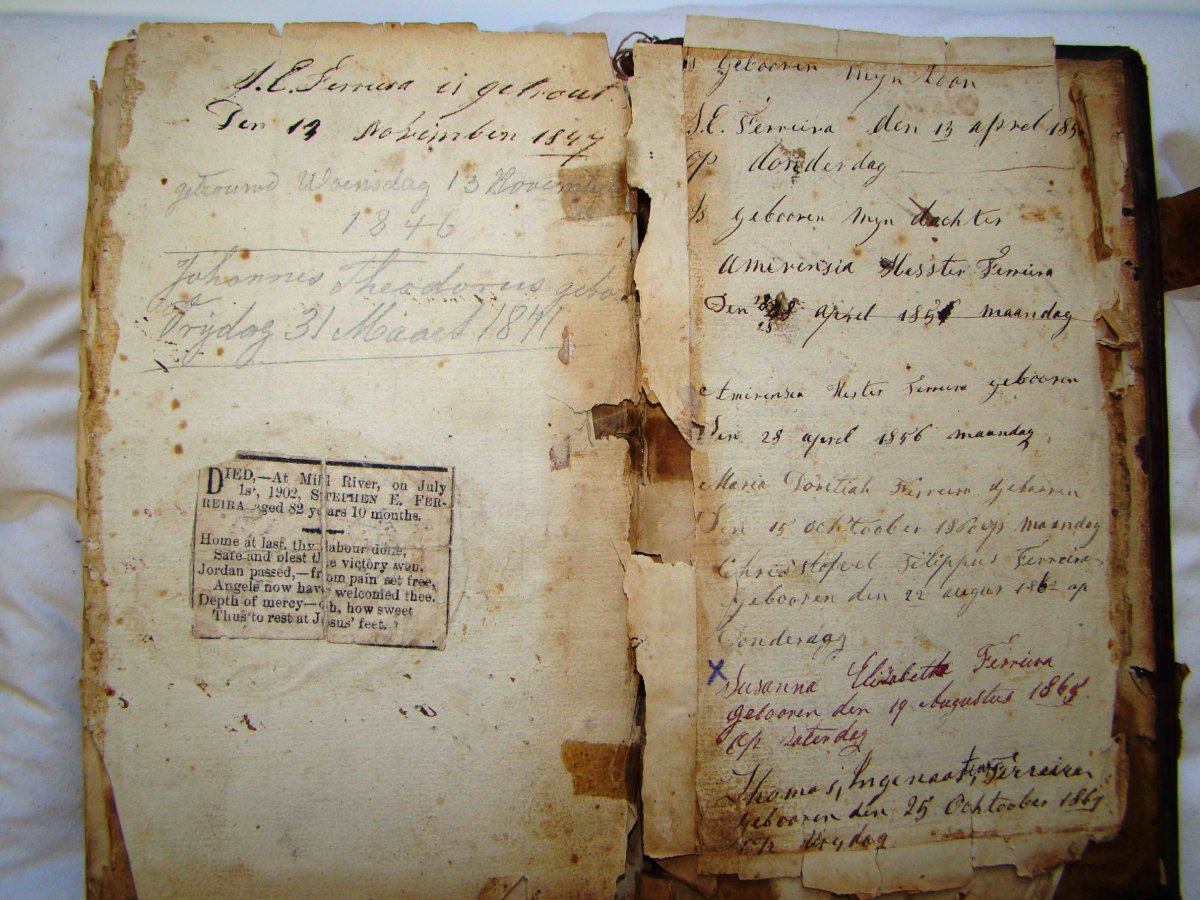 S.E. Ferreira is getrout
Den 13 November 1847
getrouwd Woensdag 13 November
1846
Johannes Theodorus gebo
Vrijdag 31 Maart 1841
DIED,—At Mill River, on July
1st, 1902, STEPHEN E. FER-
REIRA aged 82 years 10 months.
Home at last, thy labour done,
Safe and blest the victory won,
Jordan passed,—from pain set free,
Angels now have welcomed thee.
Depth of mercy—oh, how sweet
Thus to rest at Jesus' feet.
Is gebooren myn zoon
S.E. Ferreira den 13 aprel 185
op donderdag
Is gebooren myn dochter
Amirensia Hesster Ferreira
Den 28 aprel 1856 maandag
28
Amirensia Hester Ferreira gebooren
Den 28 aprel 1856 maandag
Maria Doretiah Ferreira gebooren
Den 15 ochtoober 1860 op maandag
Christoffel Filippus Ferreira
gebooren den 22 augus 1862 op
Donderag
X Susanna Elizabetta Ferreira
gebooren den 19 Augustus 1865
op zaterdag
Thomas, Ferreira
gebooren den 25 Ochtoober 1867
op vrydag